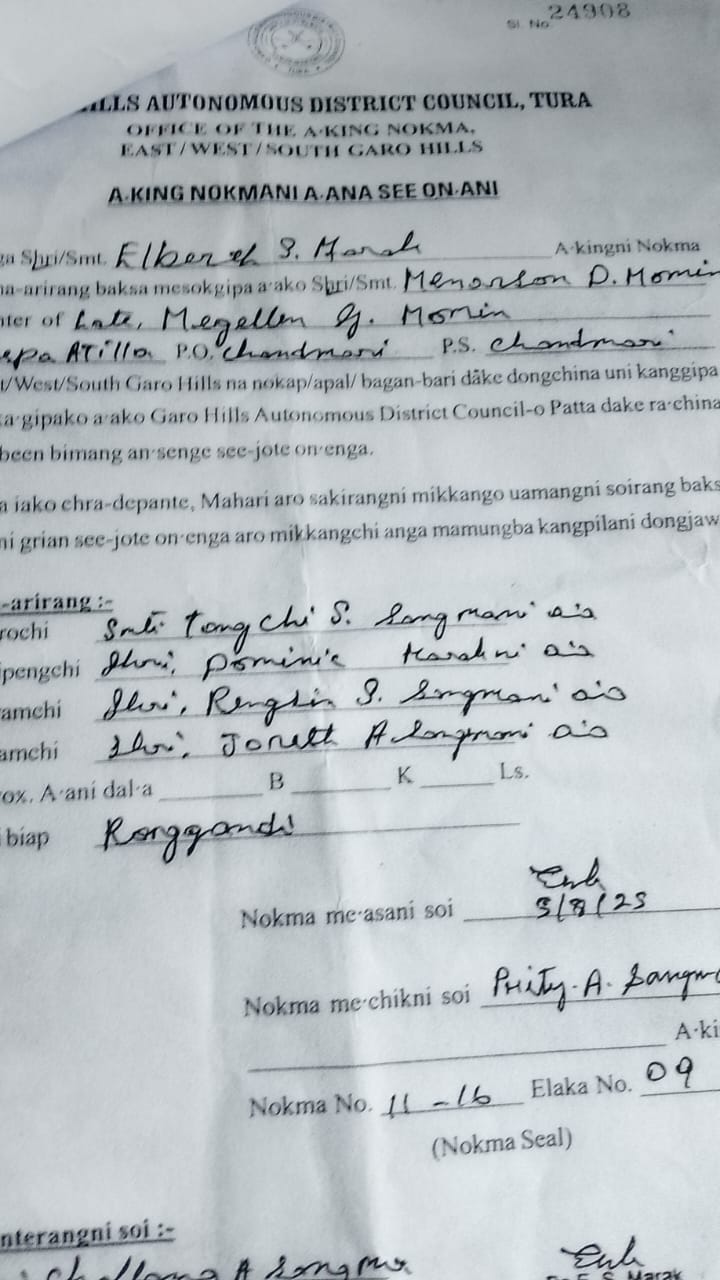 Sl. No 24908
ILLS AUTONOMOUS DISTRICT COUNCIL, TURA
OFFICE OF THE A·KING NOKMA,
EAST/WEST/SOUTH GARO HILLS
A·KING NOKMANI A·ANA SEE ON·ANI
ga Shri/Smt. S. Marak A·kingni Nokma
na-arirang baksa mesokgipa a·ako Shri/Smt. Menarson D. Momin
ter of Late, Megellen G. Momin
Atilla P.O. Chandmari P.S. Chandmari
t/West/South Garo Hills na nokap/apal/ bagan-bari dâke dongchina uni kanggipa
a·gipako a·ako Garo Hills Autonomous District Council-o Patta dake ra·china
been bimang an·senge see-jote on·enga.
a iako chra-depante, Mahari aro sakirangni mikkango uamangni soirang baks
ni grian see-jote on·enga aro mikkangchi anga mamungba kangpilani dongjaw
-arirang :-
rochi Smti. Tongchi S. Sangmani a·a
ipengchi Shri. Dominic Marakni a·a
amchi Shri, S. Sangmani a·a
amchi Shri. A Sangmani a·a
ox. A·ani dal·a B K Ls.
biap Ronggandi
Nokma me·asani soi
5/8/25
Nokma me·chikni soi Prity. A. Sangm
A·ki
Nokma No. 11 - 16 Elaka No. 09
(Nokma Seal)
nterangni soi :-
A Sangma
Marak